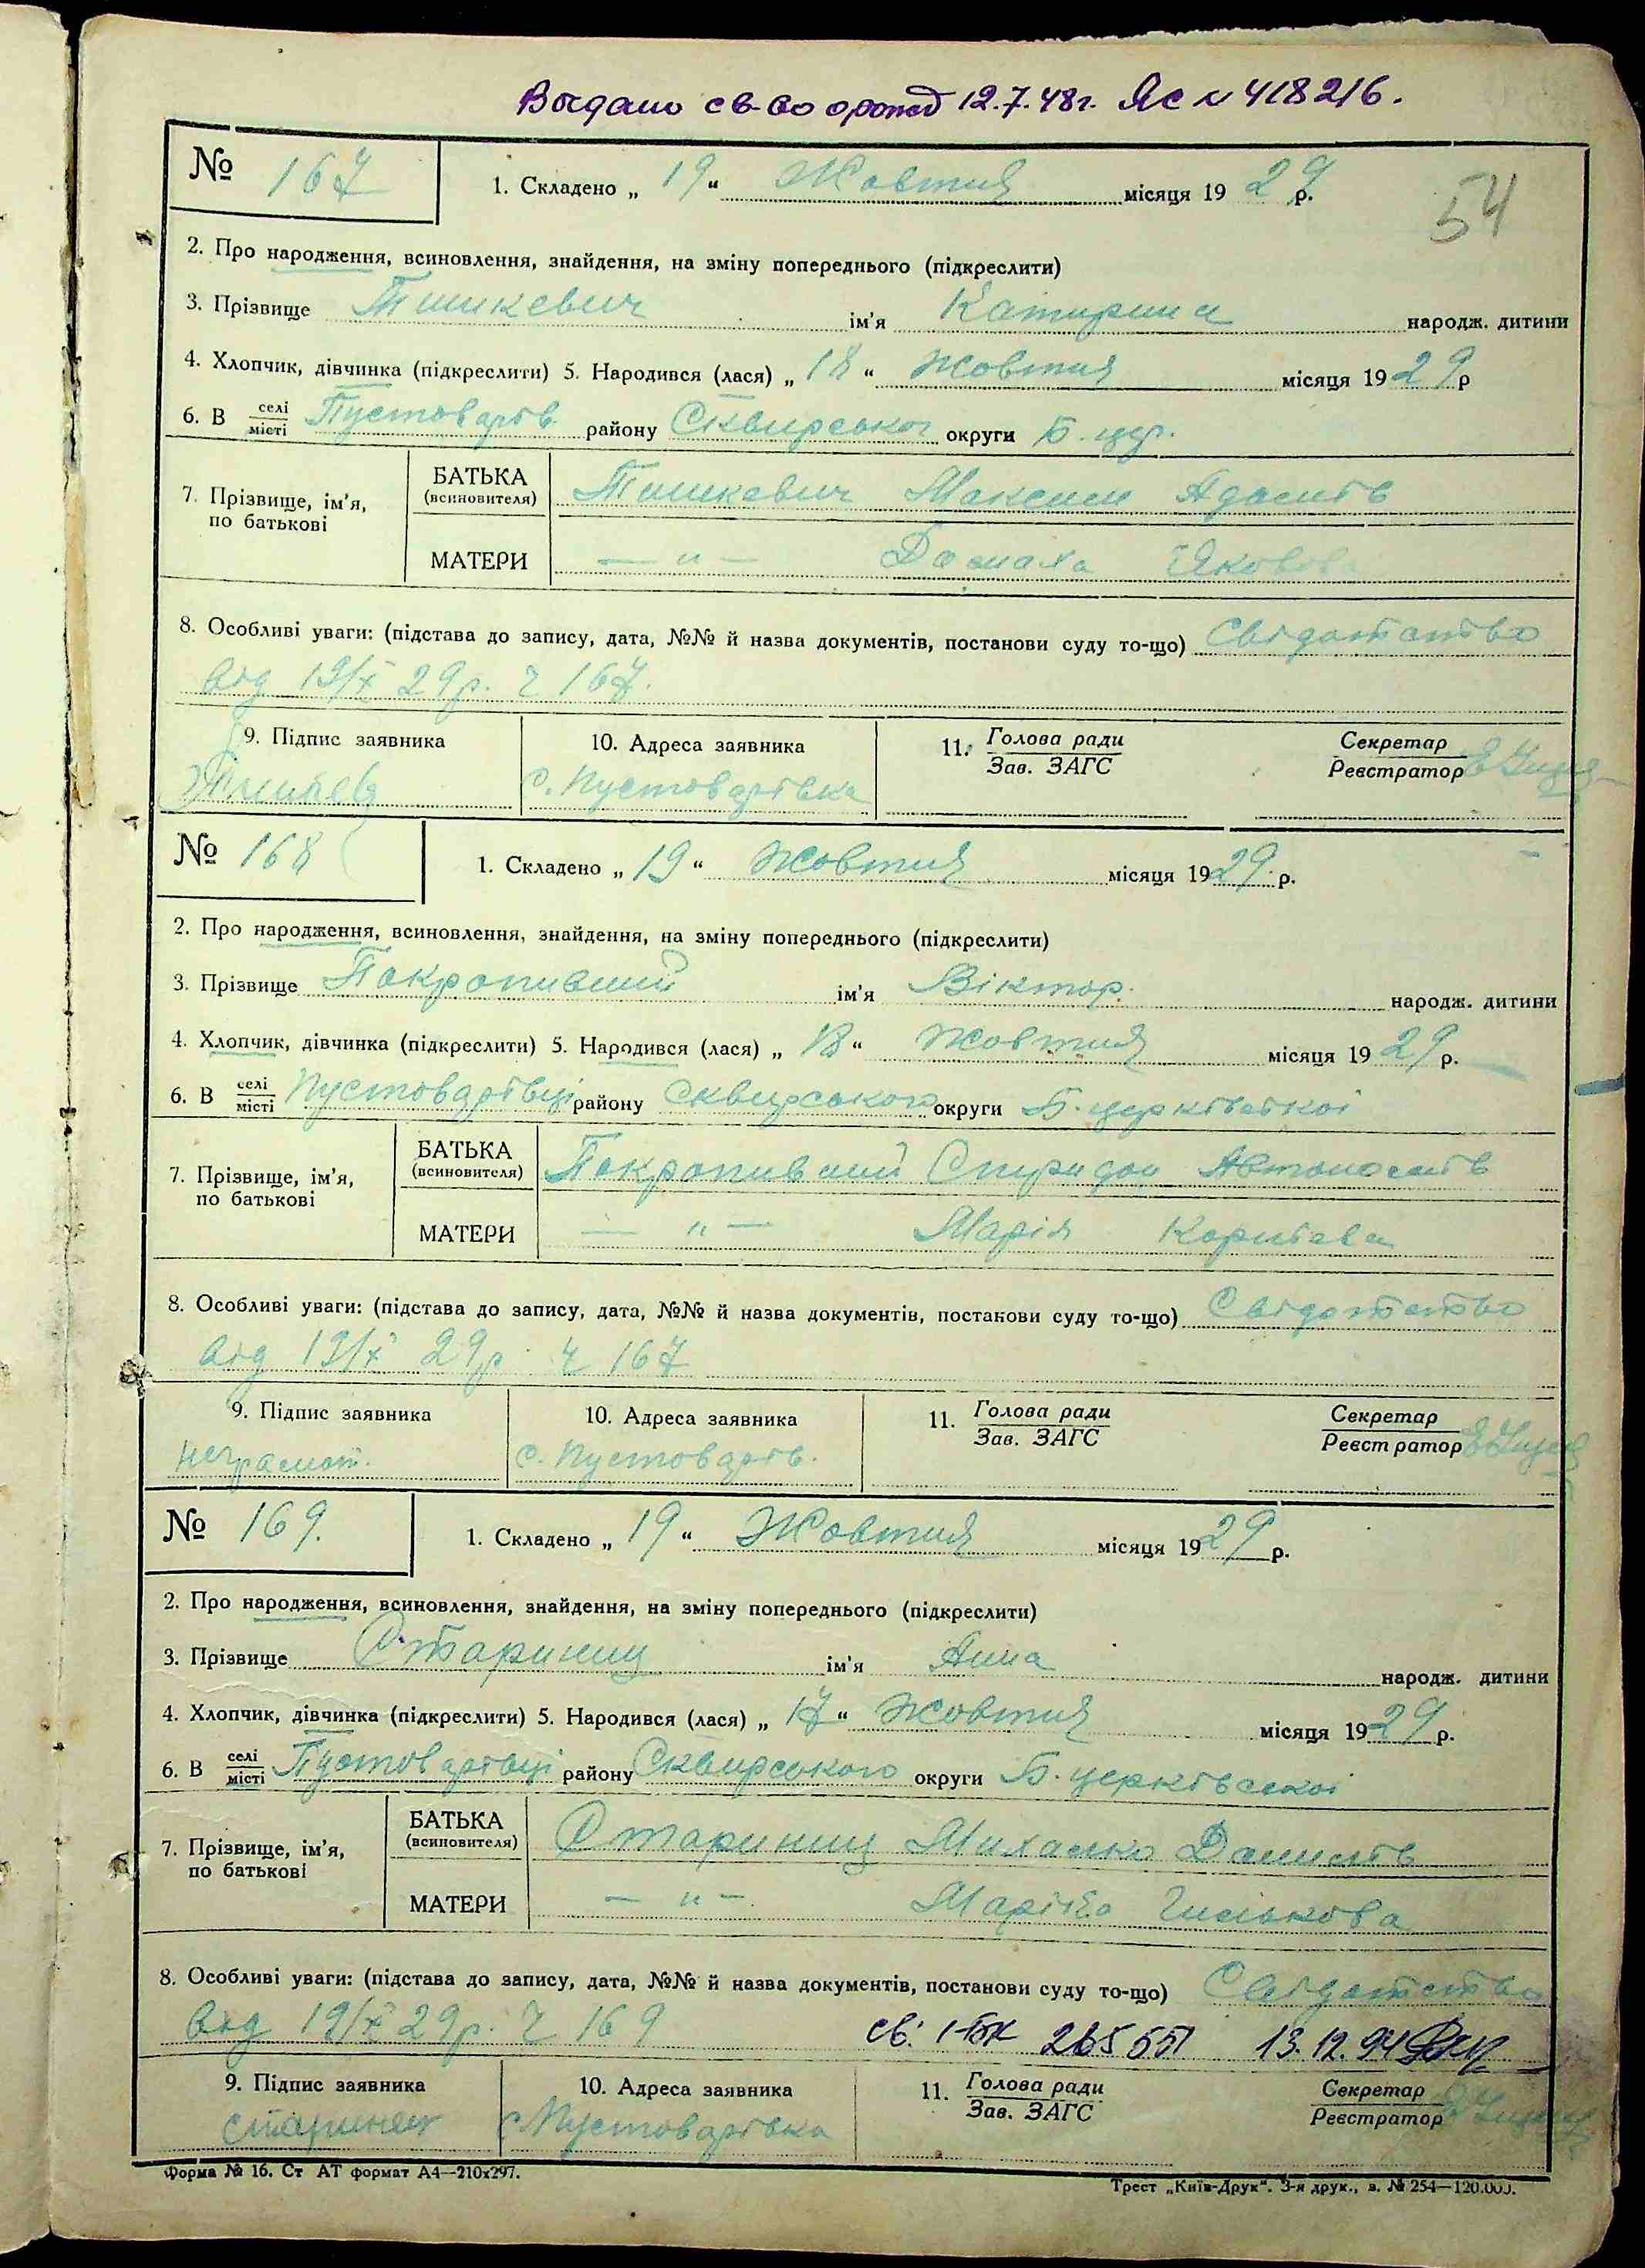 Выдано св-во о рожд 12.7.48г. ЯС № 418216.
№ 167 1. Складено „ 19 “ Жовтня місяця 19 29 р.
54
2. Про народження, всиновлення, знайдення, на зміну попереднього (підкреслити)
3. Прізвище Тишкевич ім'я Катирина народж. дитини
4. Хлопчик, дівчинка (підкреслити) 5. Народився (лася) „ 18 “ Жовтня місяця 19 29 р
6. В селі/місті Пустоварів. району Сквирськог округи Б. цер.
7. Прізвище, ім'я, по батькові БАТЬКА (всиновителя) Тишкевич Максим Адамів
МАТЕРИ — „ — Домаха Яковов
8. Особливі уваги: (підстава до запису, дата, №№ й назва документів, постанови суду то-що) Свідотство
від 19/X 29р. ч 167.
9. Підпис заявника 10. Адреса заявника 11. Голова ради/Зав. ЗАГС Секретар/Реєстратор
с. Пустоварівка
№ 168 1. Складено „ 19 “ Жовтня місяця 19 29 р.
2. Про народження, всиновлення, знайдення, на зміну попереднього (підкреслити)
3. Прізвище Покропивний ім'я Віктор. народж. дитини
4. Хлопчик, дівчинка (підкреслити) 5. Народився (лася) „ 18 “ Жовтня місяця 19 29 р.
6. В селі/місті Пустоварівці району Сквирського округи Б. церківської
7. Прізвище, ім'я, по батькові БАТЬКА (всиновителя) Покропивний Спиридон Автономів
МАТЕРИ — „ — Марія Корніева
8. Особливі уваги: (підстава до запису, дата, №№ й назва документів, постанови суду то-що) Свідотство
від 19/X 29р. ч 167
9. Підпис заявника 10. Адреса заявника 11. Голова ради/Зав. ЗАГС Секретар/Реєстратор
неграмот. с. Пустоварів.
№ 169. 1. Складено „ 19 “ Жовтня місяця 19 29 р.
2. Про народження, всиновлення, знайдення, на зміну попереднього (підкреслити)
3. Прізвище Старинец ім'я Анна народж. дитини
4. Хлопчик, дівчинка (підкреслити) 5. Народився (лася) „ 17 “ Жовтня місяця 19 29 р.
6. В селі/місті Пустоварівці району Сквирського округи Б. церківської
7. Прізвище, ім'я, по батькові БАТЬКА (всиновителя) Старинец Михалко Данилів
МАТЕРИ — „ — Марійка
8. Особливі уваги: (підстава до запису, дата, №№ й назва документів, постанови суду то-що) Свідотство
від 19/X 29р. ч 169 св: 1-БК 265557 13.12.94
9. Підпис заявника 10. Адреса заявника 11. Голова ради/Зав. ЗАГС Секретар/Реєстратор
старинец с Пустоварівка
Форма № 16. Ст АТ формат А4—210х297. Трест „Київ-Друк“. 3-я друк., з. № 254—120.000.